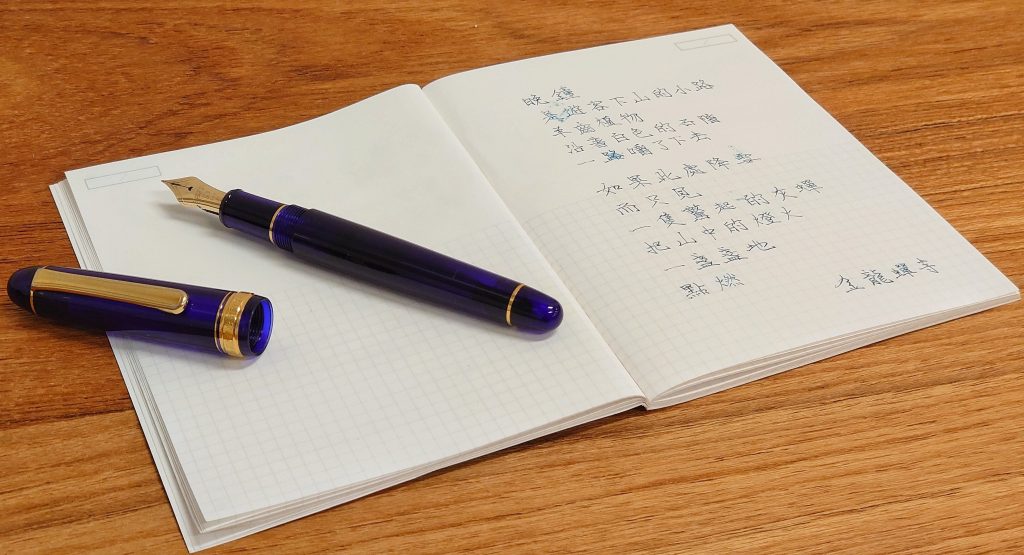 晚鐘
是遊客下山的小路
羊齒植物
沿著白色的石階
一路嚼了下去
如果此處降雪
而只見
一隻驚起的灰蟬
把山中的燈火
一盞盞地
點燃
金龍禪寺